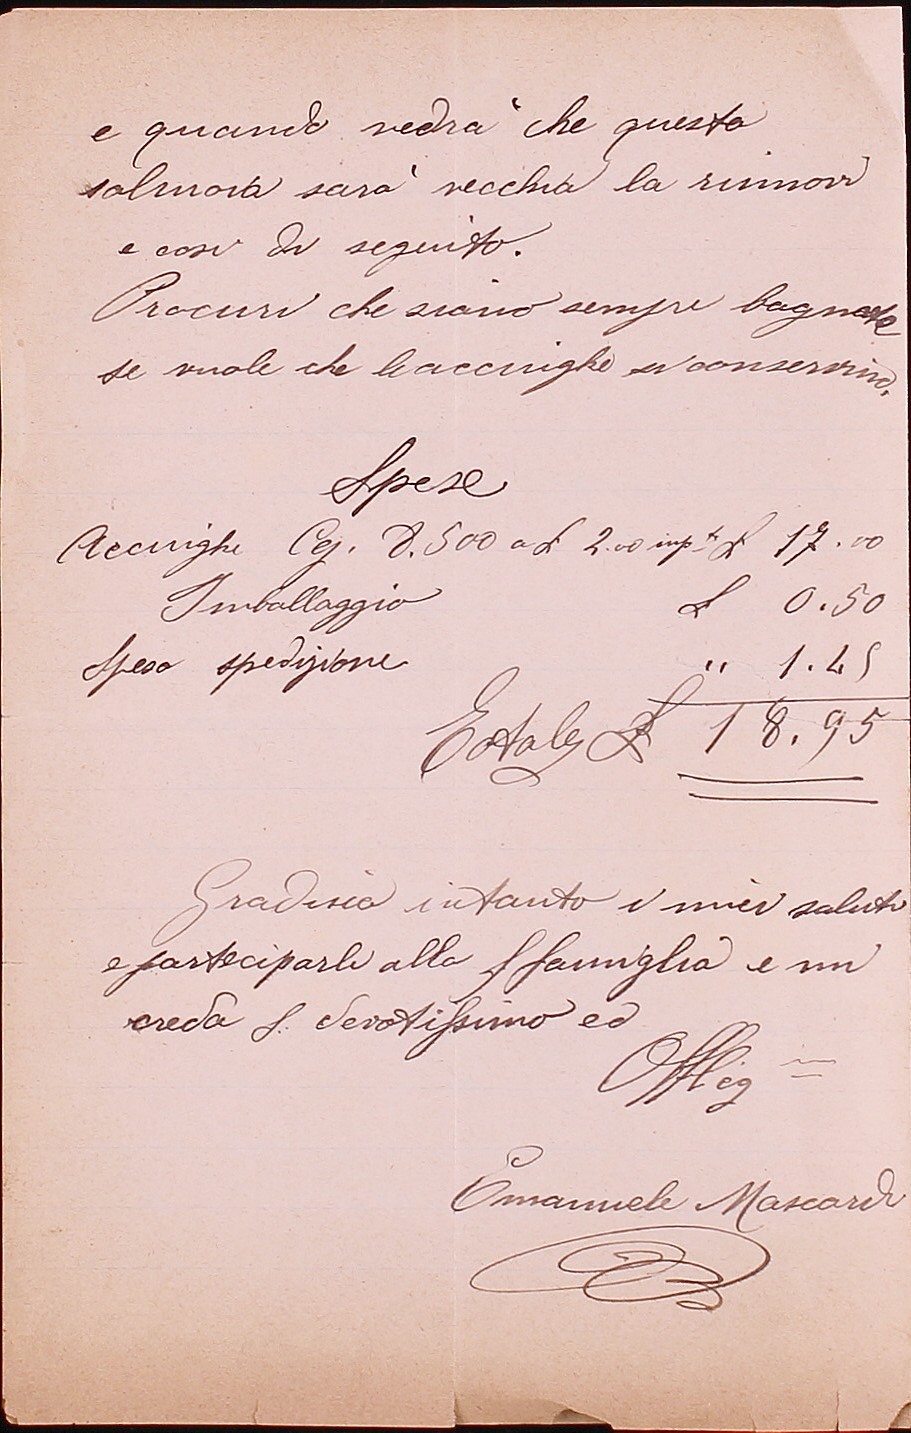 e quando vedrà che questa
salmoia sarà vecchia la rinnovi
e così di seguito.
Procuri che siano sempre bagnate
se vuole che le acciughe si conservino.
Spese
Acciughe Cg. 8.500 a £ 2.00 imp.to £ 17.00
Imballaggio £ 0.50
Spesa spedizione " 1.45
Totale £ 18.95
Gradisca intanto i miei saluti
e parteciparli alla famiglia e mi
creda S. devotissimo ed
Obblig
Emanuele Mascardi